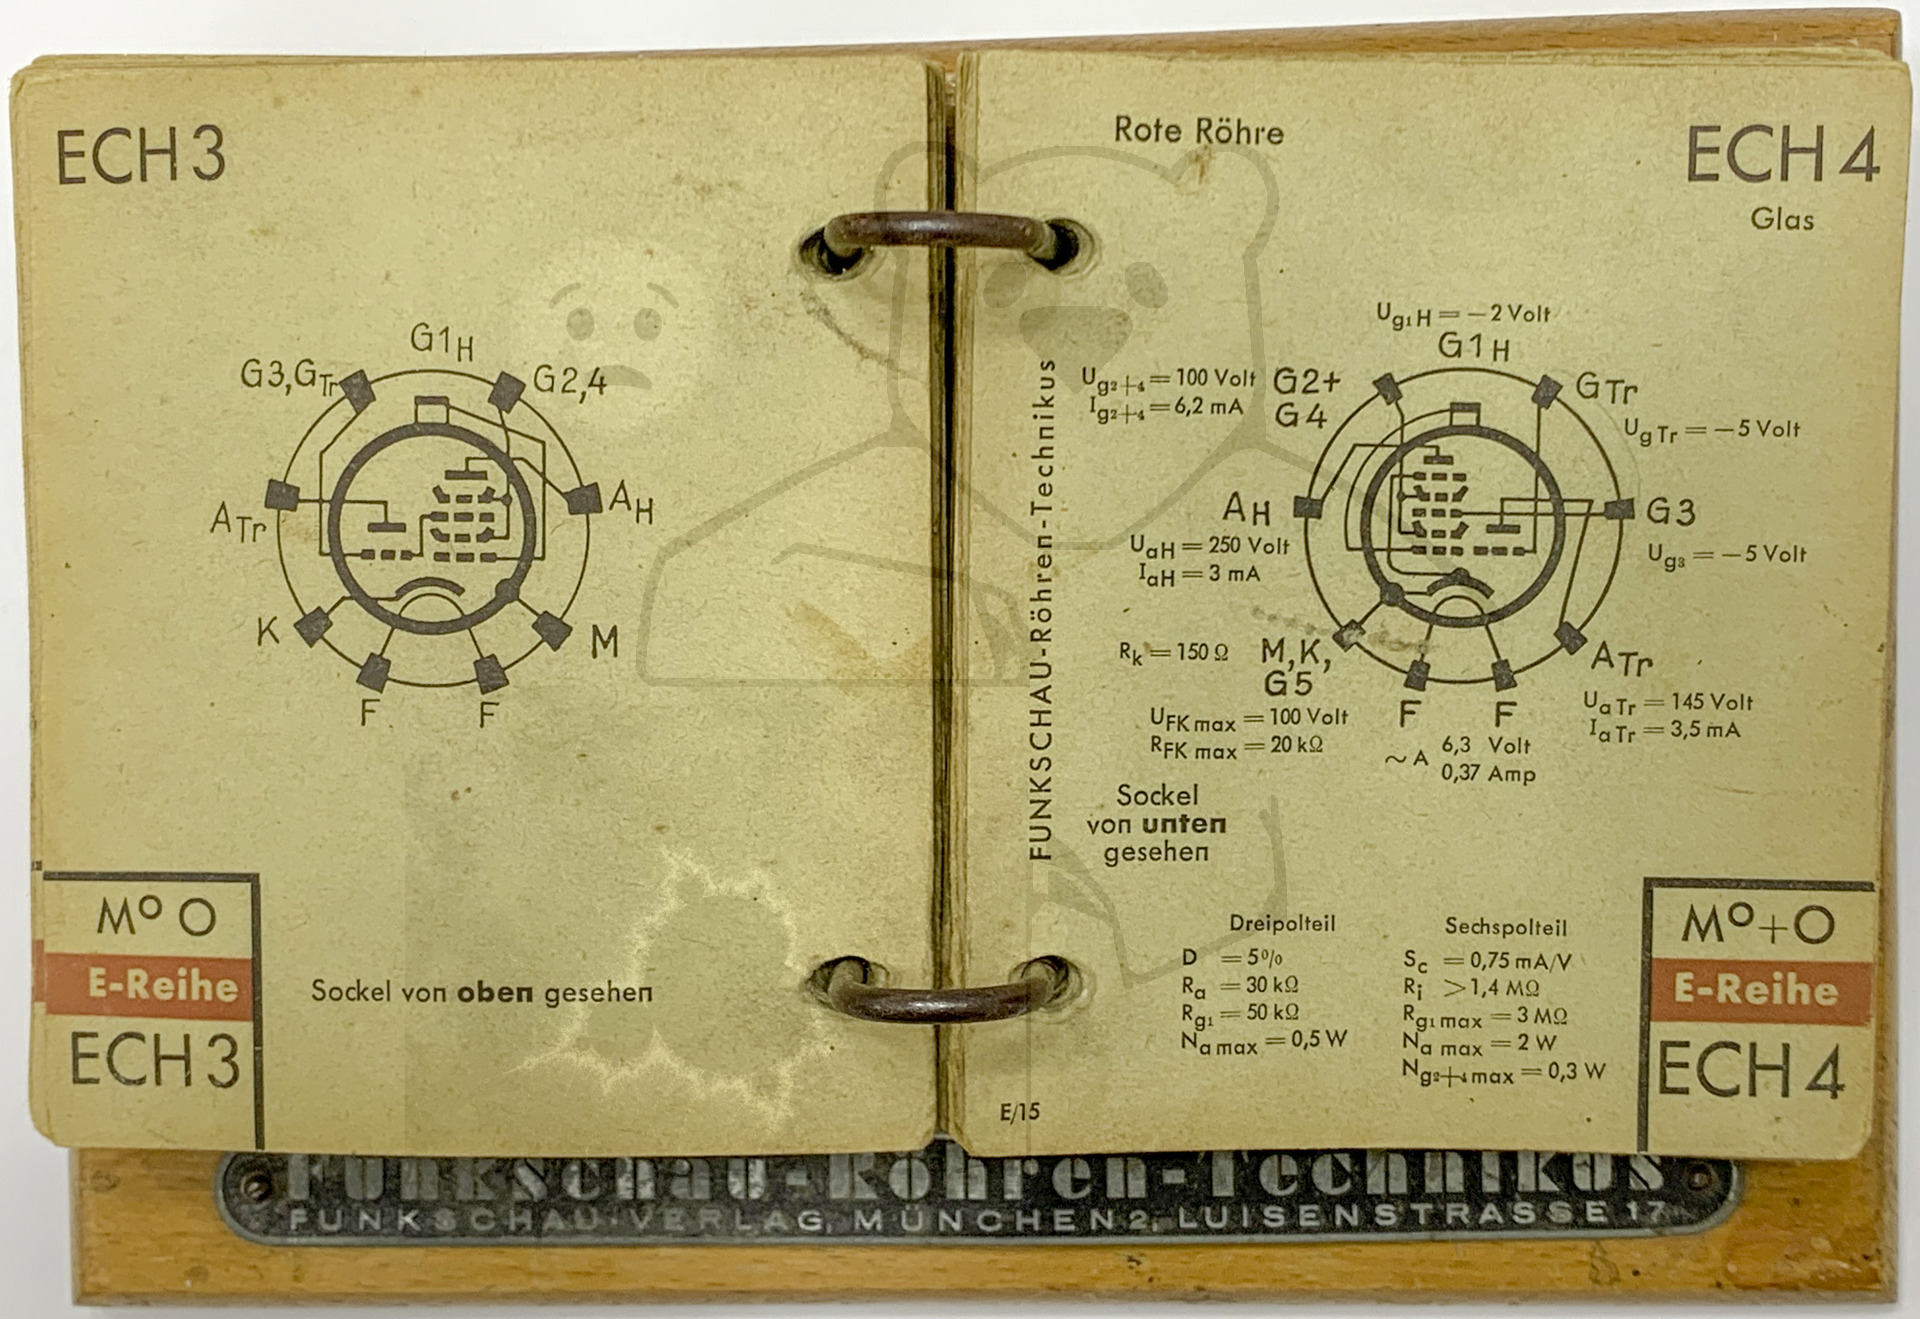 ECH 3
G1H
G3,GTr
G2,4
ATr
AH
K
M
F
F
M° O
E-Reihe
ECH 3
Sockel von oben gesehen
Rote Röhre
ECH 4
Glas
FUNKSCHAU-Röhren-Technikus
Ug1H = −2 Volt
G1H
Ug2+4 = 100 Volt
Ig2+4 = 6,2 mA
G2+
G4
GTr
UgTr = −5 Volt
AH
UaH = 250 Volt
IaH = 3 mA
G3
Ug3 = −5 Volt
Rk = 150 Ω
M,K,
G5
ATr
UaTr = 145 Volt
IaTr = 3,5 mA
UFK max = 100 Volt
RFK max = 20 kΩ
F
F
~A 6,3 Volt
0,37 Amp
Sockel
von unten
gesehen
Dreipolteil
D = 5%
Ra = 30 kΩ
Rg1 = 50 kΩ
Na max = 0,5 W
Sechspolteil
Sc = 0,75 mA/V
Ri >1,4 MΩ
Rg1 max = 3 MΩ
Na max = 2 W
Ng2+4 max = 0,3 W
E/15
M°+O
E-Reihe
ECH 4
Funkschau-Röhren-Technikus
FUNKSCHAU-VERLAG, MÜNCHEN 2, LUISENSTRASSE 17